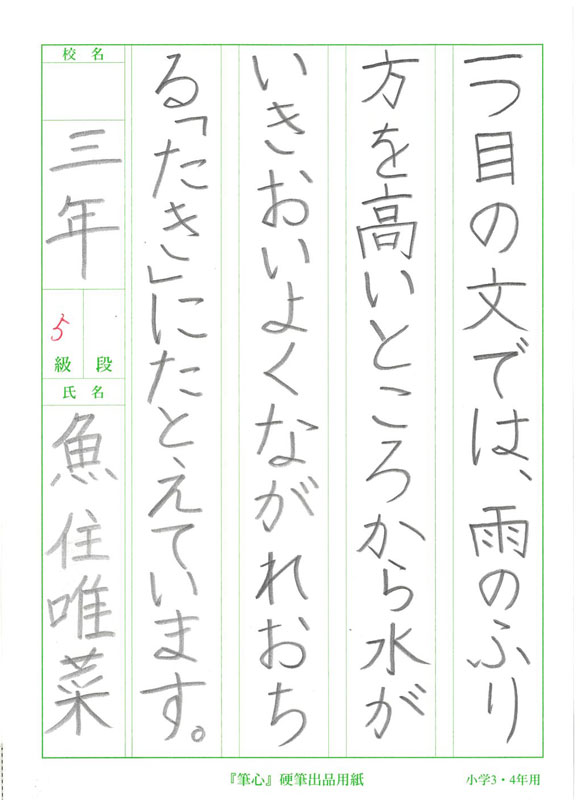 一つ目の文では、雨のふり
方を高いところから水が
いきおいよくながれおち
る「たき」にたとえています。
校名
三年
5
級 段
氏名
魚住唯菜
『筆心』硬筆出品用紙
小学3・4年用